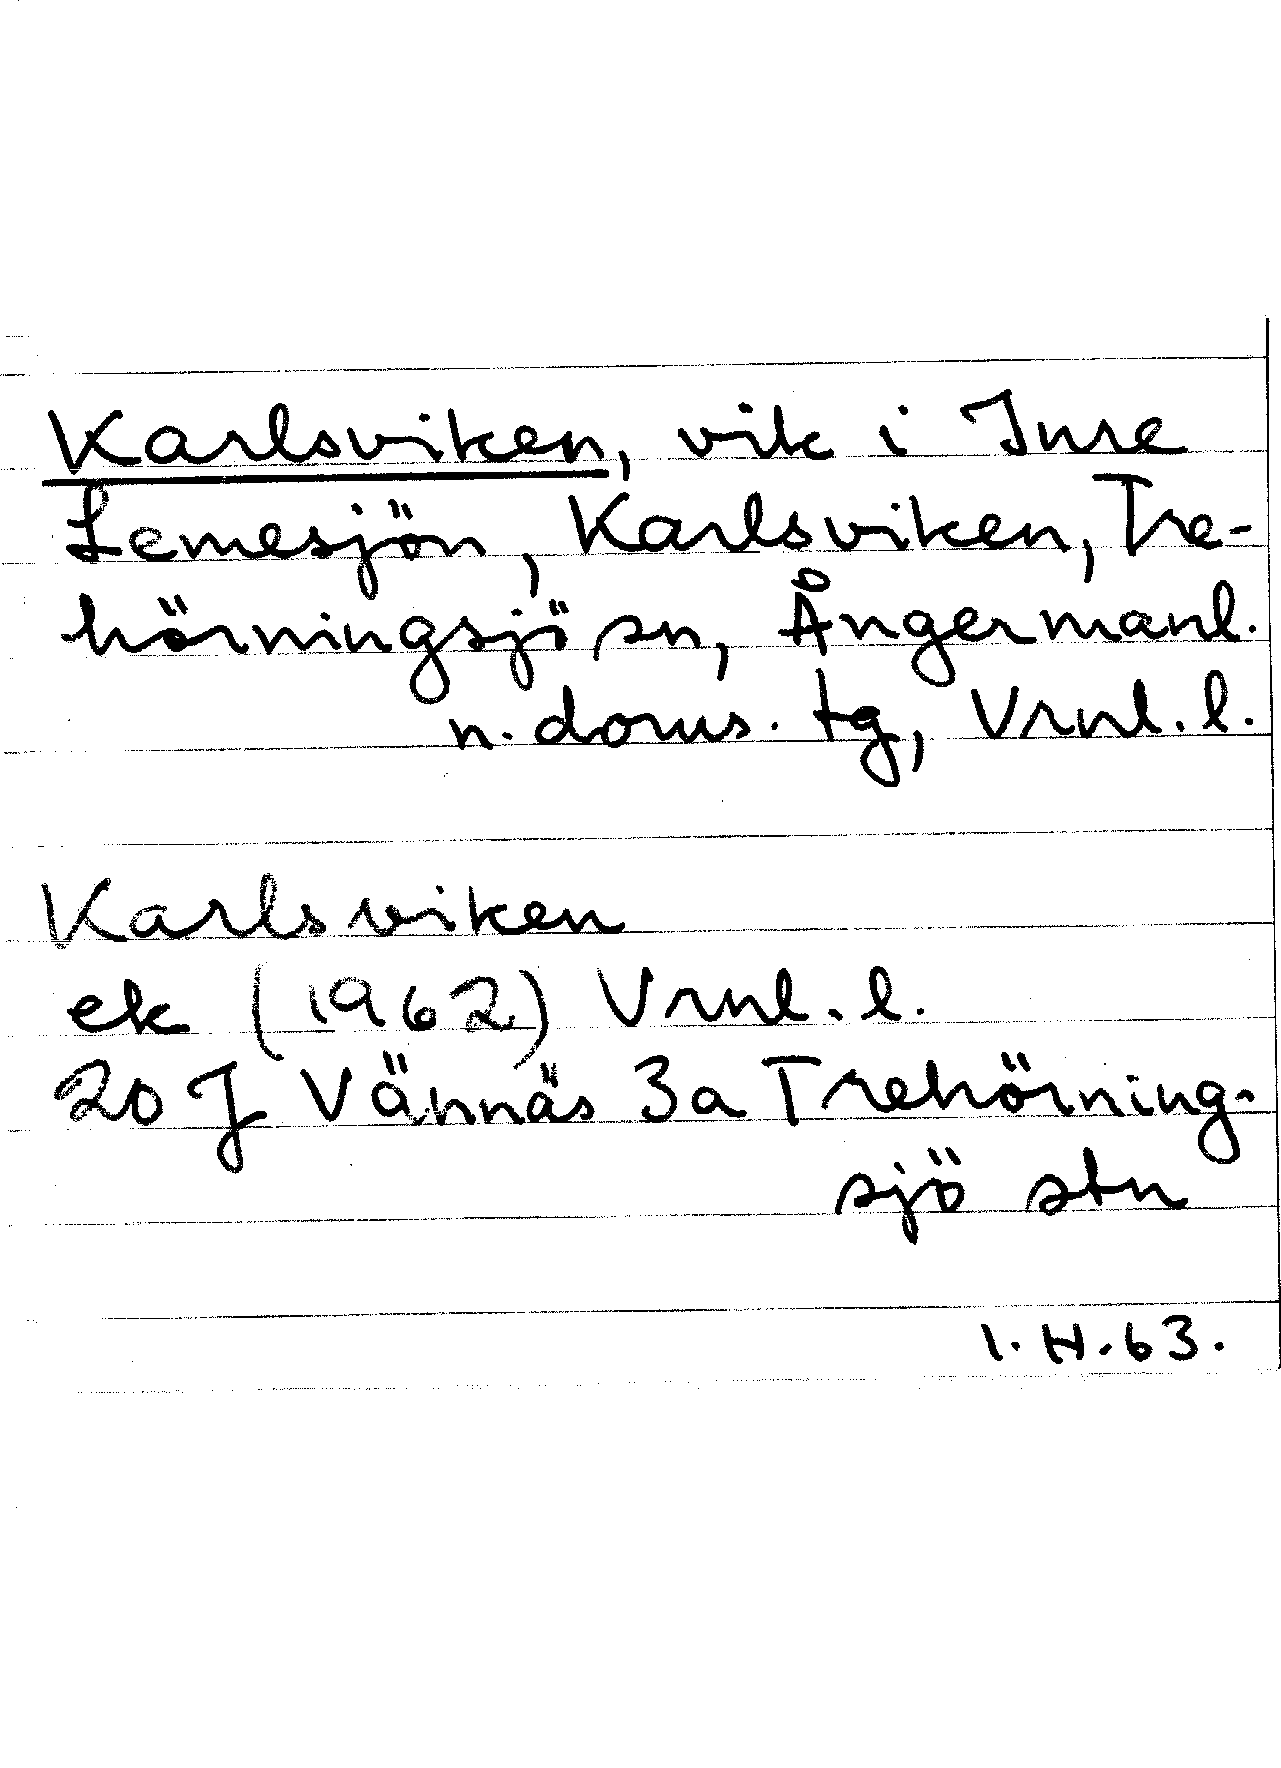 Karlsviken, vik i Inre
Lemesjön, Karlsviken, Tre-
hörningsjö sn, Ångermanl.
n. doms. tg, Vrnl. l.
Karlsviken
ek (1962) Vrnl. l.
20 J Vännäs 3a Trehörning-
sjö stn
I. H. 63.